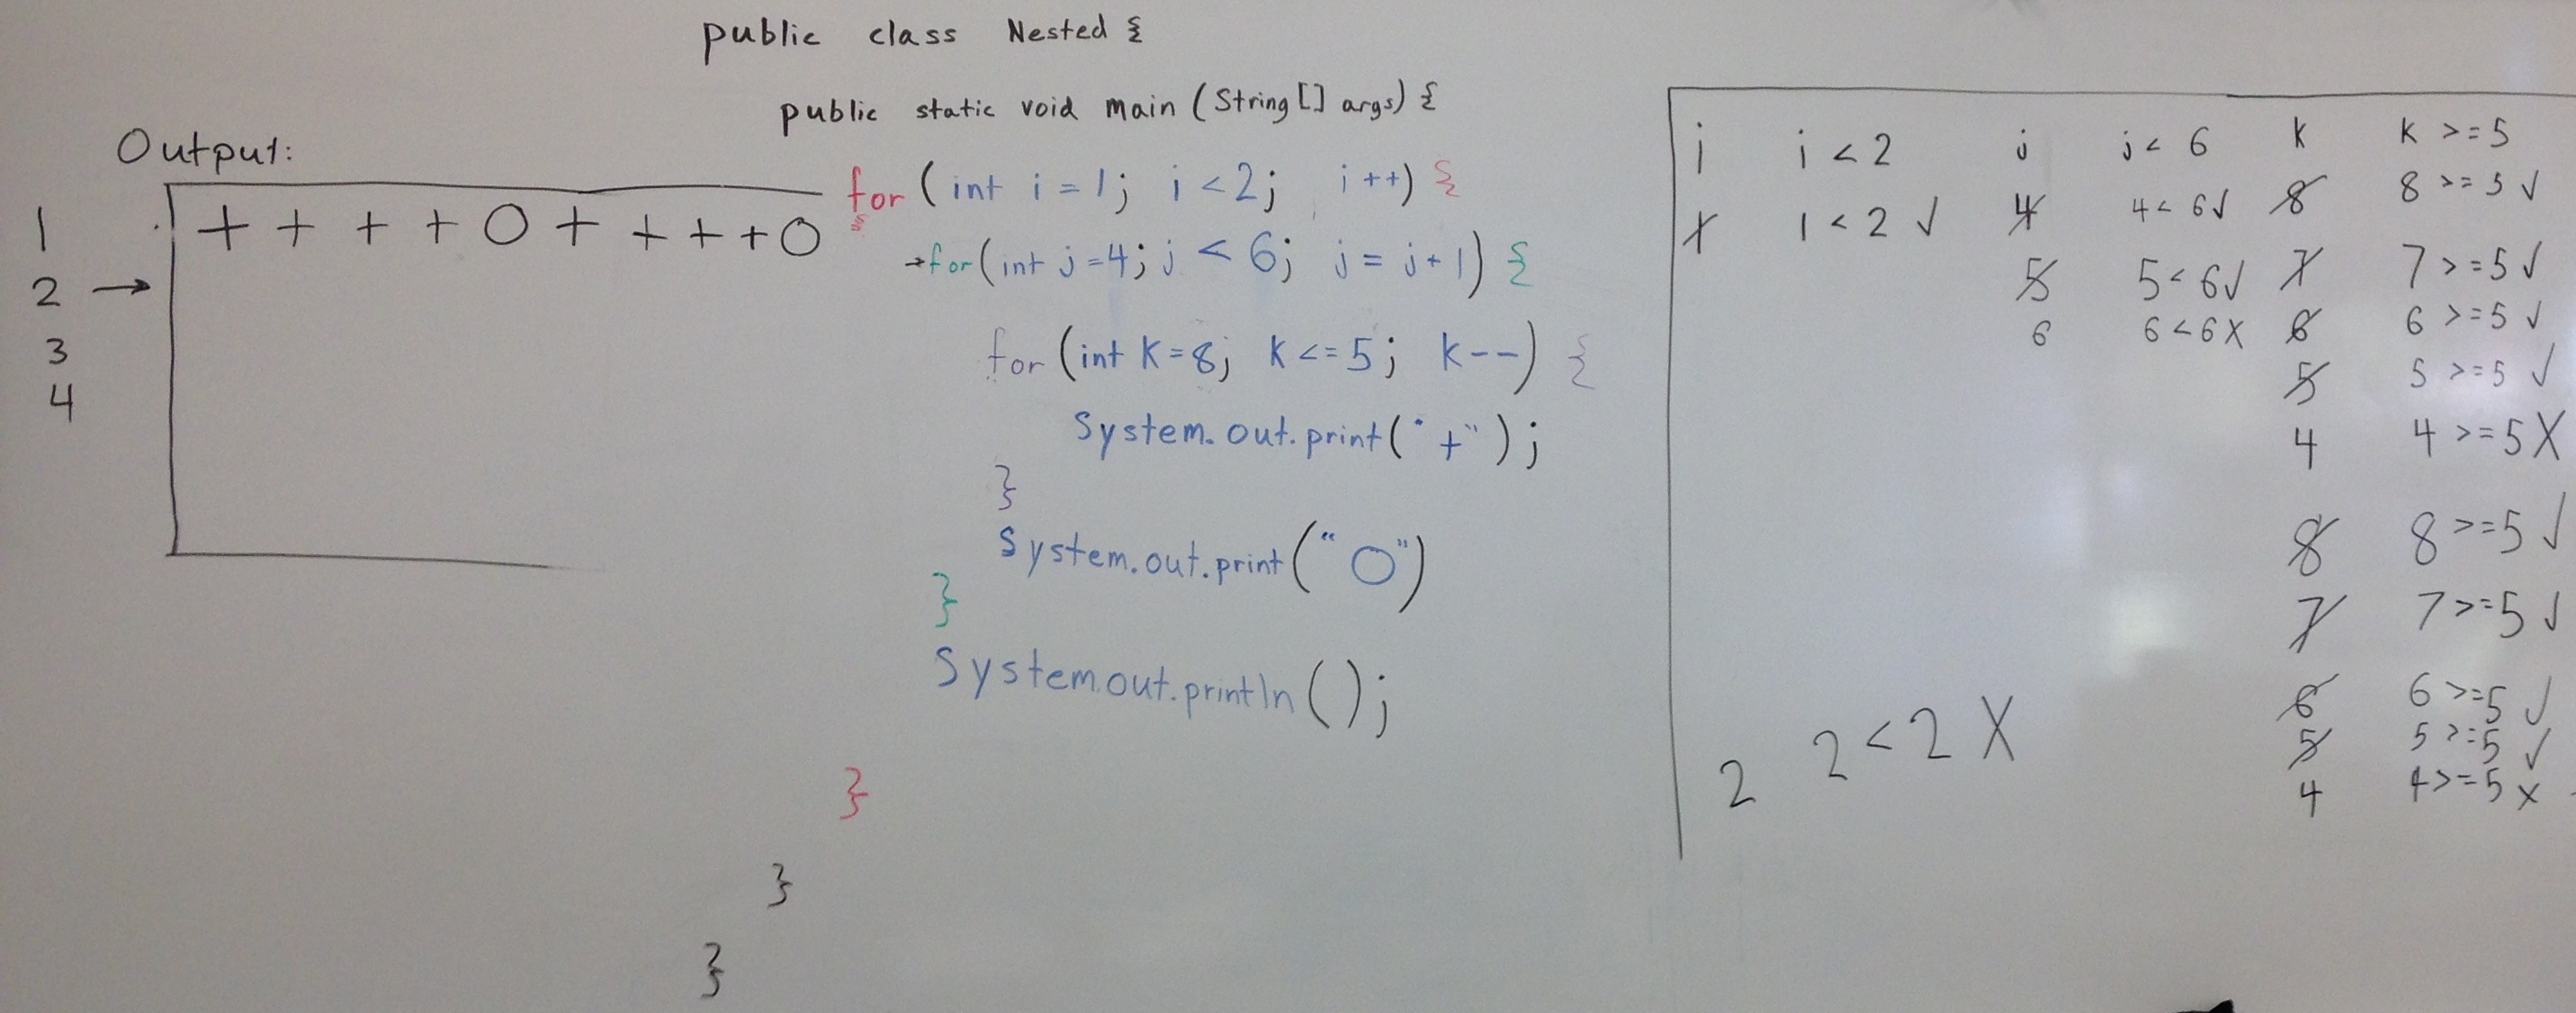 public class Nested {
public static void main (String [] args) {
for (int i = 1; i < 2; i ++) {
for (int j = 4; j < 6; j = j + 1) {
for (int k = 8; k <= 5; k --) {
System.out.print ("+");
}
System.out.print ("O")
}
System.out.println ();
}
}
}
Output:
1 + + + + O + + + + O
2 →
3
4
i i < 2 j j < 6 k k >= 5
1 1 < 2 ✓ 4 4 < 6 ✓ 8 8 >= 5 ✓
5 5 < 6 ✓ 7 7 >= 5 ✓
6 6 < 6 X 6 6 >= 5 ✓
5 5 >= 5 ✓
4 4 >= 5 X
8 8 >= 5 ✓
7 7 >= 5 ✓
6 6 >= 5 ✓
2 2 < 2 X 5 5 >= 5 ✓
4 4 >= 5 X